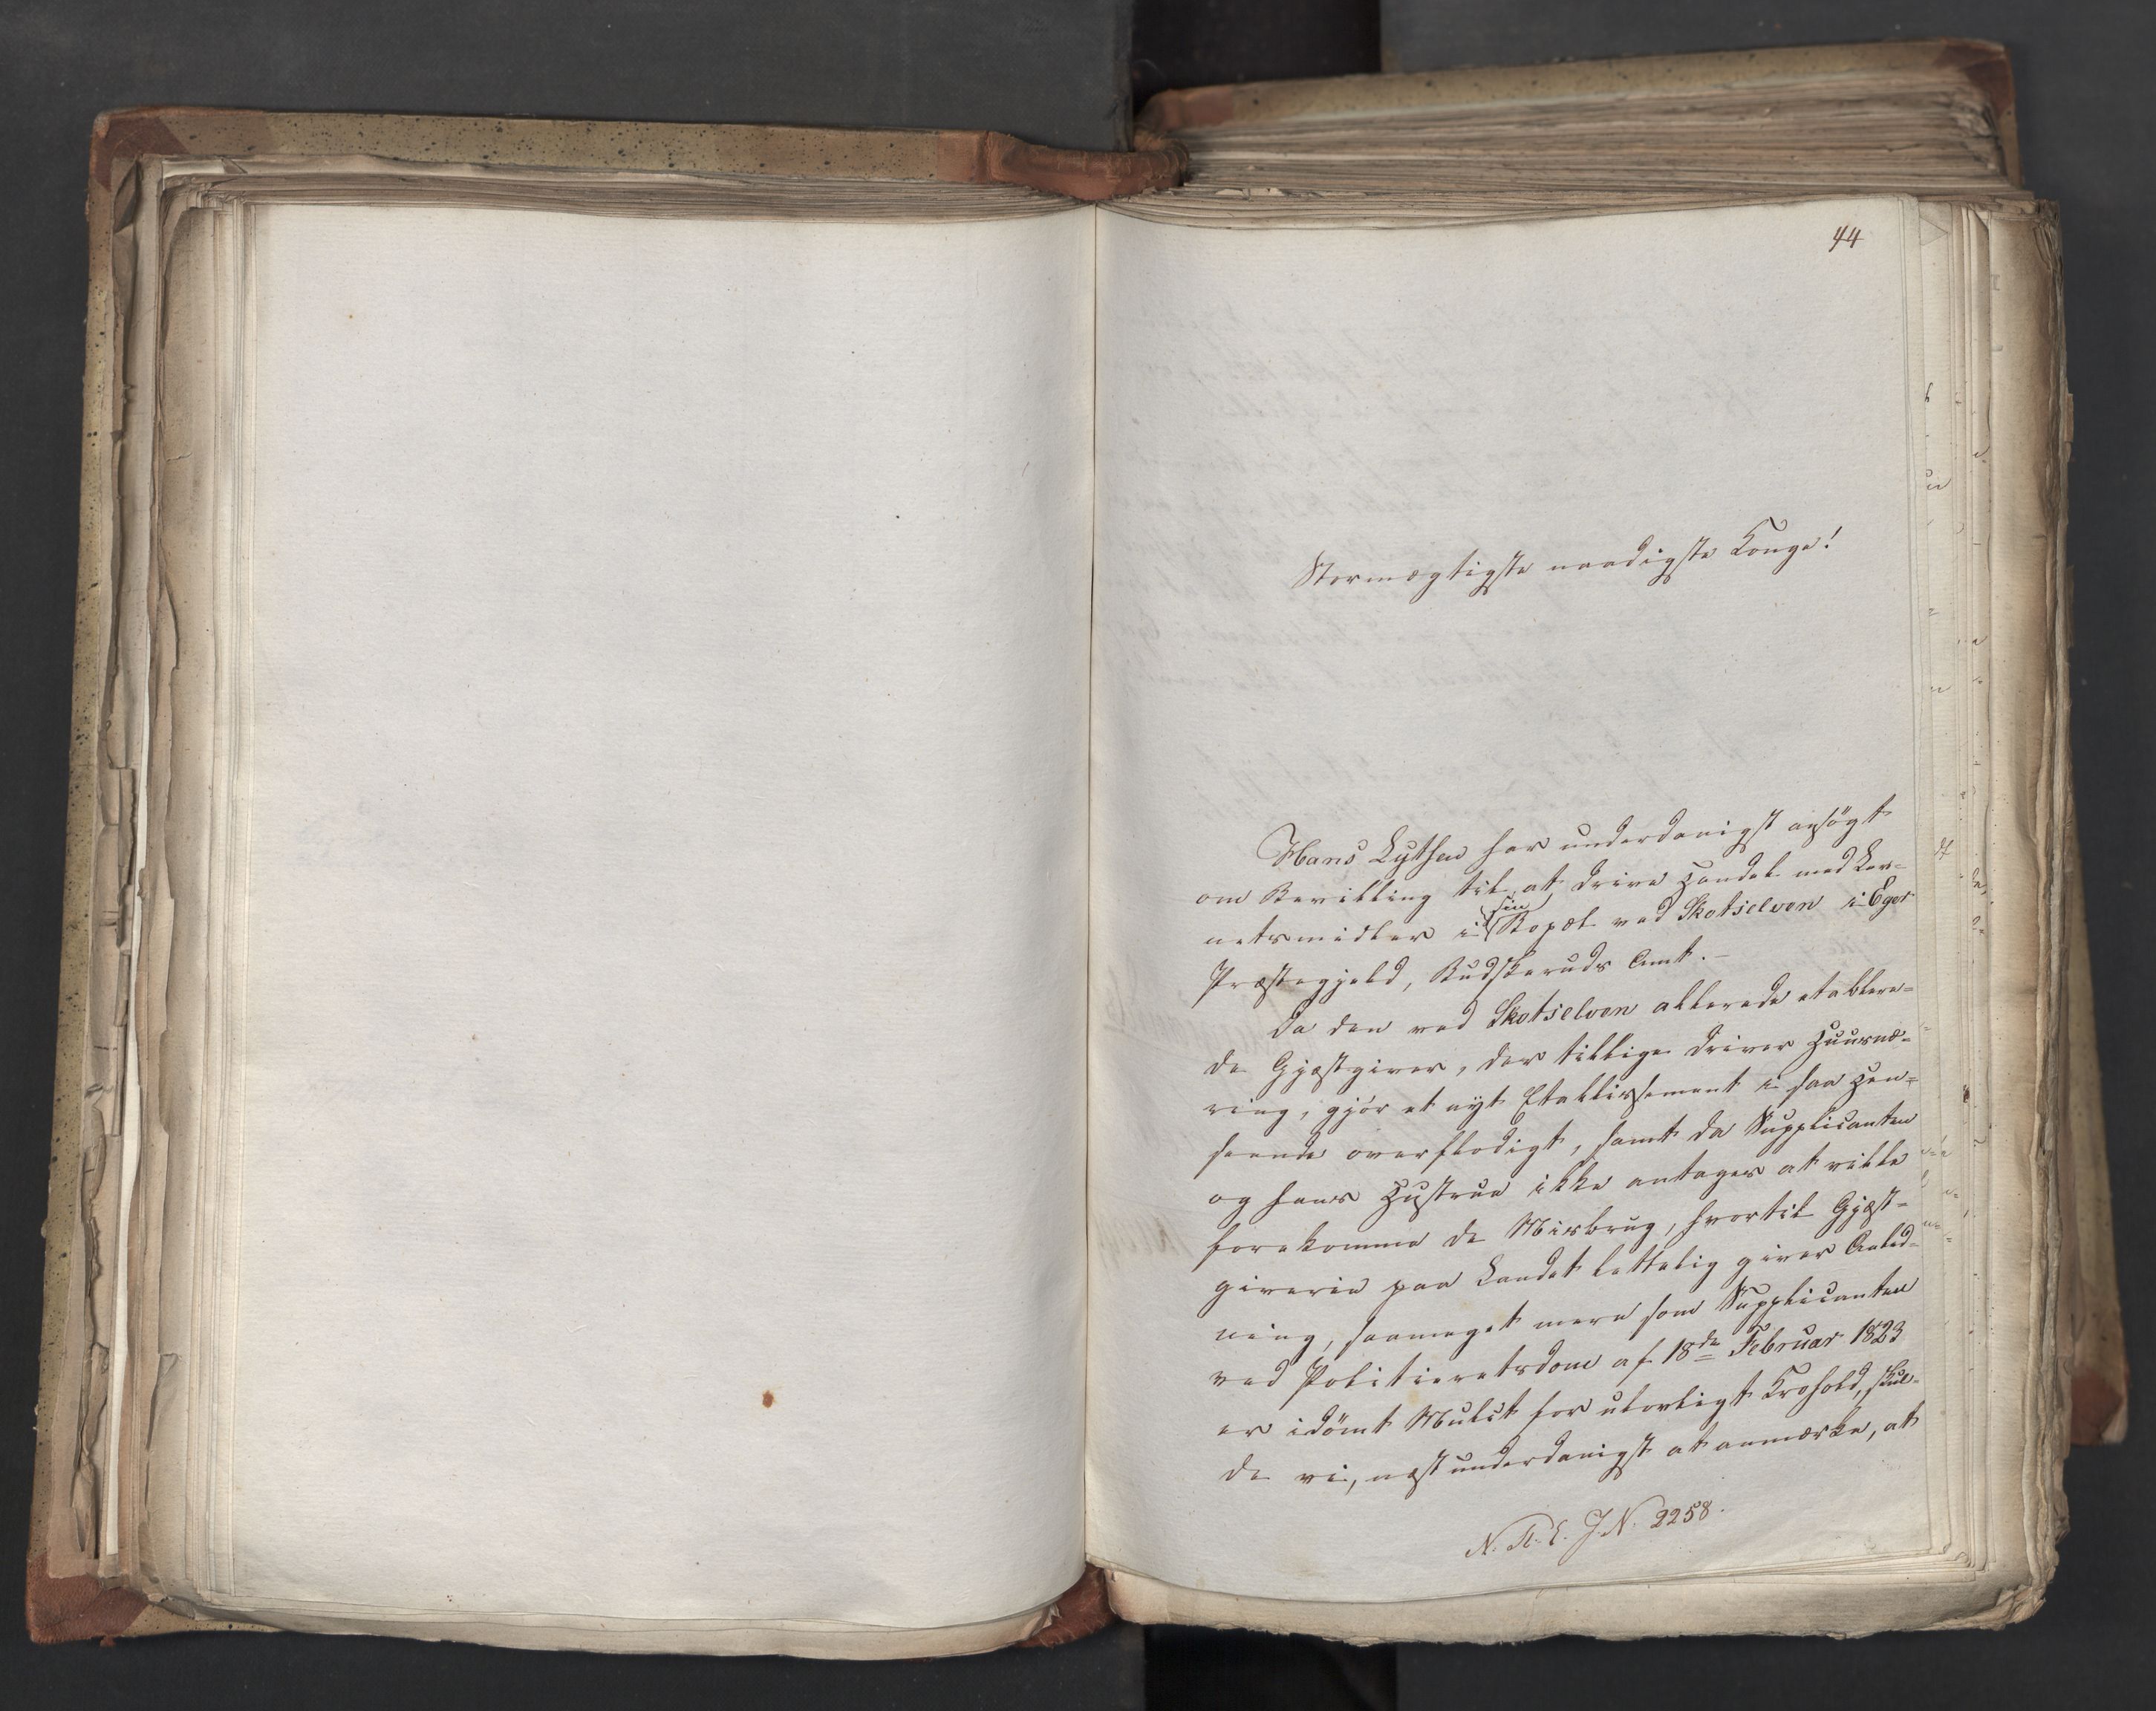 44
Stormægtigste naadigste Konge!
Hans Lythen har underdanigst ansögt
om Bevilling til at drive Handel med Lev=
netsmidler i sin Bopæl ved Skotselven i Eger
Præstegjeld, Budskeruds Amt. –
Da den ved Skotselven allerede etablere=
de Gjæstgiver, der tillige driver Huusnæ=
ring, gjör et nyt Etablissement i saa Hen=
seende overflødigt, samt da Supplicanten
og hans Hustrue ikke antages at ville
forekomme de Misbrug, hvortil Gjæst=
giverie paa Landet lettelig giver Anled=
ning, saameget mere som Supplicanten
ved Politieretsdom af 18de Februar 1823
er idömt Mulct for ulovligt Krohold, skul=
de vi, næst underdanigst at anmærke, at
J.N. 2258.